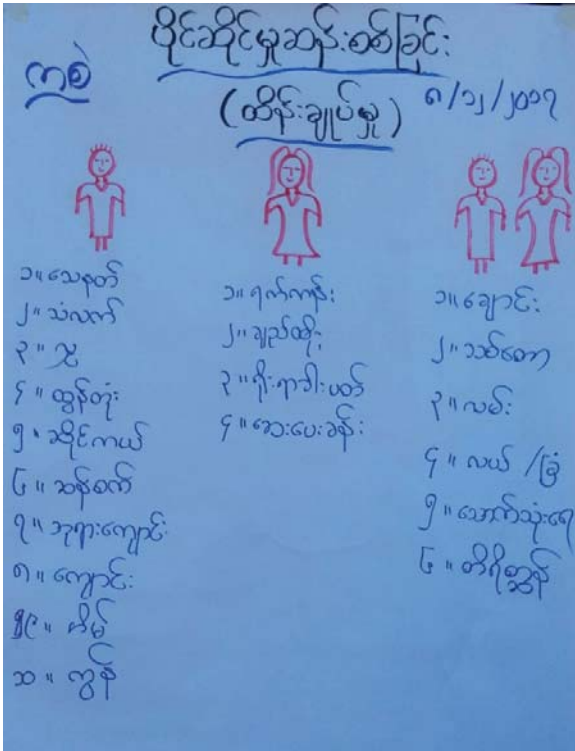 ပိုင်ဆိုင်မှုဆန်းစစ်ခြင်း
ကစဲ
(ထိန်းချုပ်မှု)
၈/၁၂/၂၀၁၇
၁။ သေနတ်
၂။ သံလက်
၃။
၄။ ထွန်တုံး
၅။ ဆိုင်ကယ်
၆။ ဆန်စက်
၇။ ဘုရားကျောင်း
၈။ ကျောင်း
၉။ အိမ်
၁၀။ ကျွန်
၁။ ရက်ကန်း
၂။ ချည်ထိုး
၃။ ရိုးရာခါးပတ်
၄။ ဆေးပေးခန်း
၁။ ချောင်း
၂။ သစ်တော
၃။ လမ်း
၄။ လယ် /ခြံ
၅။ သောက်သုံးရေ
၆။ တိရိစ္ဆာန်